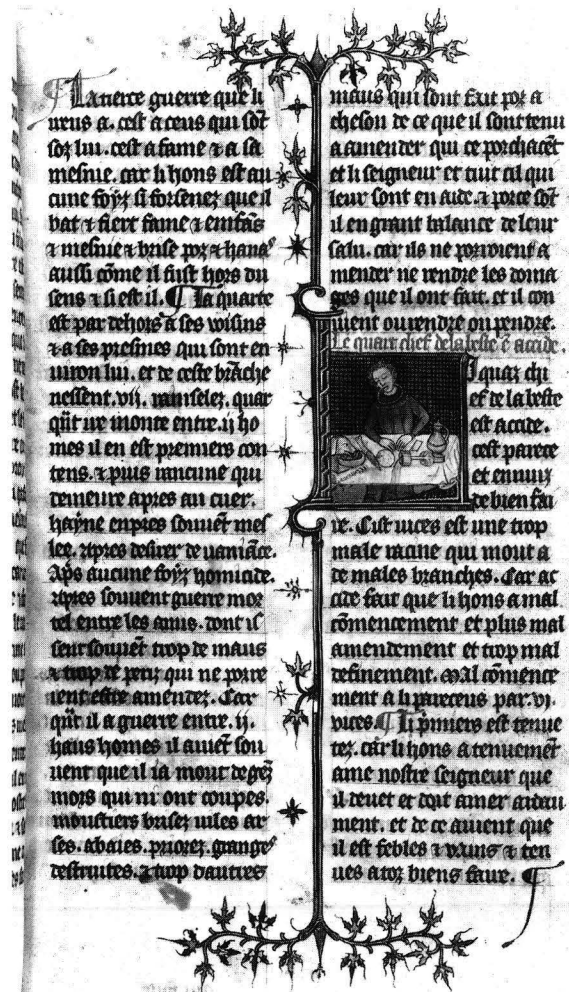 La tierce guerre que li
ireus a. cest a ceus qui sōt
soz lui. cest a fame ⁊ a sa
mesnie. car li hons est au
cune foyz si forsenez que il
bat ⁊ fiert fame ⁊ emfās
⁊ mesnie ⁊ brise poz ⁊ hanas
aussi cōme il fust hors du
sens ⁊ si est il. ¶ La quarte
est par dehors a ses voisins
⁊ a ses presmes qui sont en
uiron lui. et de ceste brāche
nessent. vij. rainselez. quar
qn̄t ire monte entre. ij ho
mes il en est premiers con
tens. ⁊ puis rancune qui
demeure apres au cuer.
hayne enpres souuēt mes
lee. apres desirer de uaniāce.
Ap̄s aucune foyz homicide.
apres souuent guerre mor
tel entre les amis. dont il
seut souuent trop de maus
⁊ trop de periz qui ne porre
ient estre amendez. Car
qn̄t il a guerre entre. ij.
haus homes il auiēt sou
uent que il ia mout de gēz
mors qui ni ont coupes.
moustiers brisez uiles ar
ses. abaies. priorez. granges
destruites. ⁊ trop dautres
maus qui sont fait por a
cheson de ce que il sont tenu
a amender qui ce porchacēt
et li seigneur et tuit cil qui
leur sont en aide. ⁊ por ce sōt
il en grant balance de leur
salu. car ils ne porroient a
mender ne rendre les doma
ges que il ont fait. et il con
uient ou rendre ou pendre.
Le quart chef de la beste ē accide.
Li quaz chi
ef de la beste
est accide.
cest parece
et ennuiz
de bien fai
re. Cist uices est une trop
male racine qui mout a
de males branches. Car ac
cide fait que li hons a mal
cōmencement et plus mal
amendement et trop mal
definement. Mal cōmence
ment a li pareceus par. vi.
uices ¶ Li p̄miers est tenue
tez. car li hons a tenuemēt
ame nostre seigneur que
il deuet et doit amer ardau
ment. et de ce auient que
il est febles ⁊ vains ⁊ ten
ues a toz biens faire. ¶